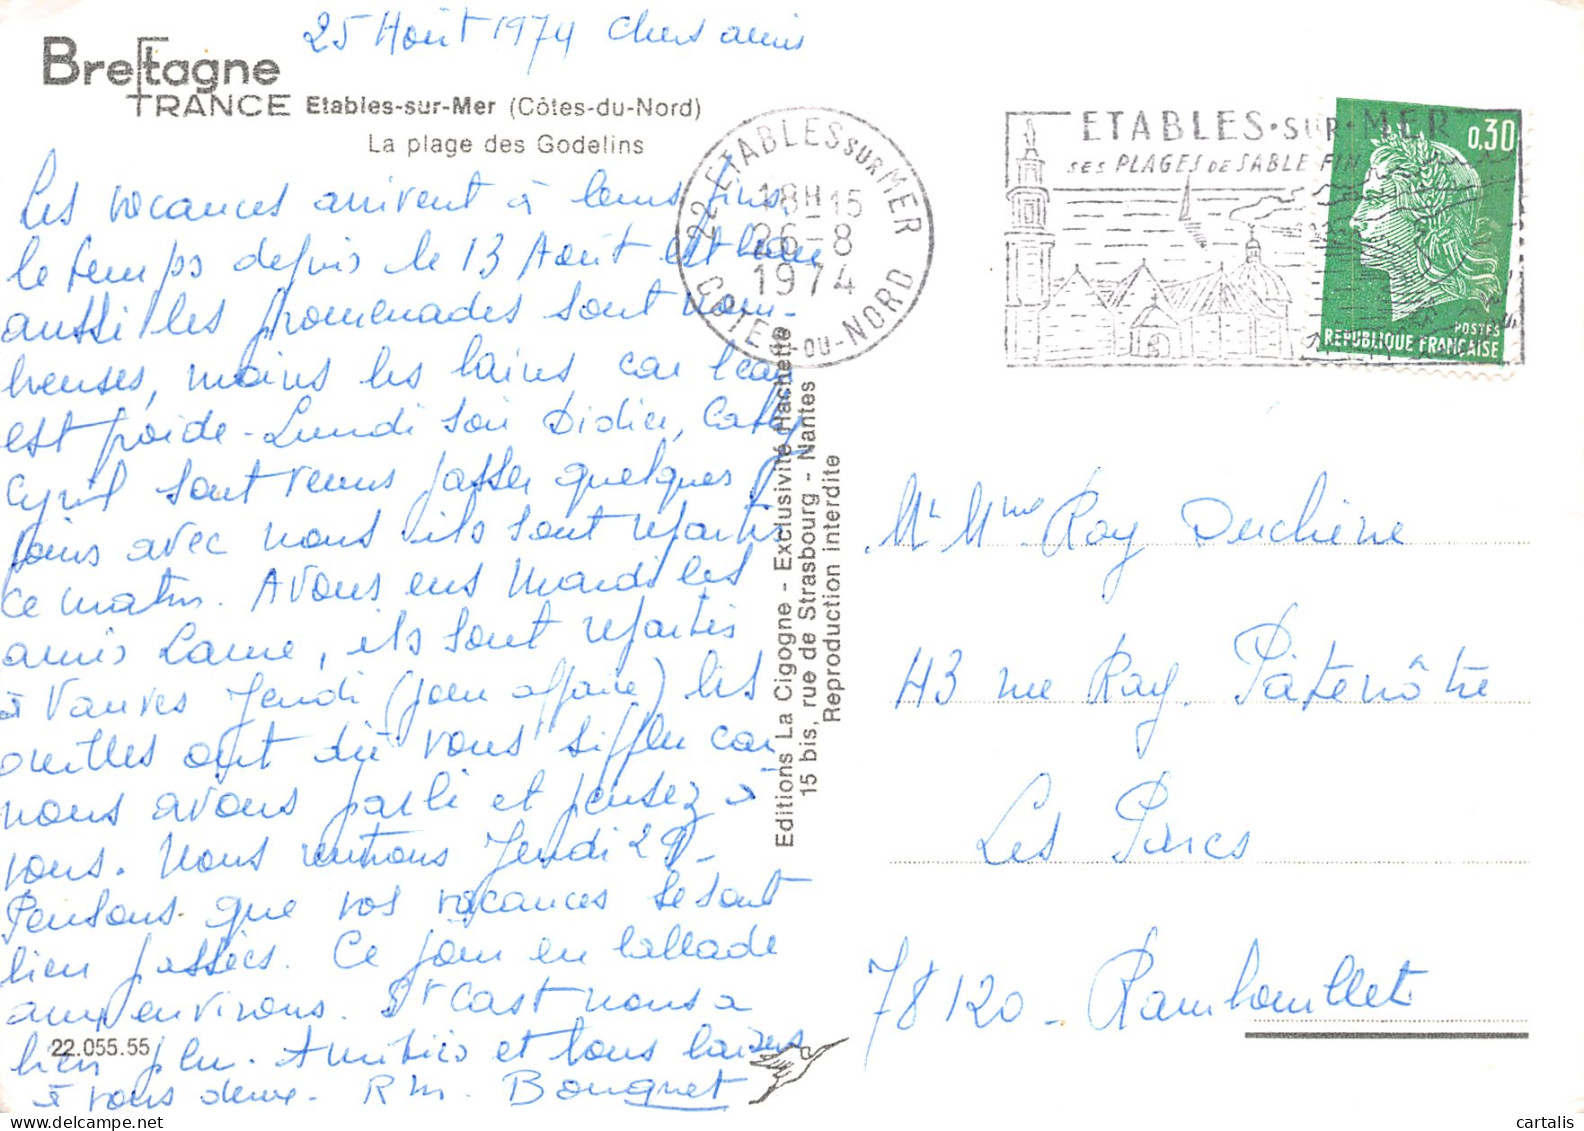 25 Août 1974 Chers amis
Bretagne
FRANCE Etables-sur-Mer (Côtes-du-Nord)
La plage des Godelins
Les vacances arrivent à leurs fins,
le temps depuis le 13 Août est beau
aussi les promenades sont nom-
breuses, moins les bains car l'eau
est froide - Lundi soir Didier, Cathy
Cyril sont venus passer quelques
jours avec nous ils sont repartis
ce matin. Avons eus Mardi les
amis Lame, ils sont repartis
à Vanves Jeudi (pour affaire) les
oreilles ont dû vous siffler car
nous avons parlé et pensez à
vous. Nous rentrons Jeudi 29 -
Pensons que vos vacances se sont
bien passées. Ce jour en ballade
aux environs. St Cast nous a
bien plu. Amitiés et bons baisers
à vous deux - R M. Bouquet
22.055.55
Editions La Cigogne - Exclusivité Hachette
15 bis, rue de Strasbourg - Nantes
Reproduction interdite
22 ETABLES SUR MER
18H15
26-8
1974
COTES-DU-NORD
ETABLES-SUR-MER
SES PLAGES DE SABLE FIN
0,30
POSTES
REPUBLIQUE FRANÇAISE
Mr Mme Ray Duchêne
43 rue Ray. Patenôtre
Les Parcs
78120 - Rambouillet
cartalis